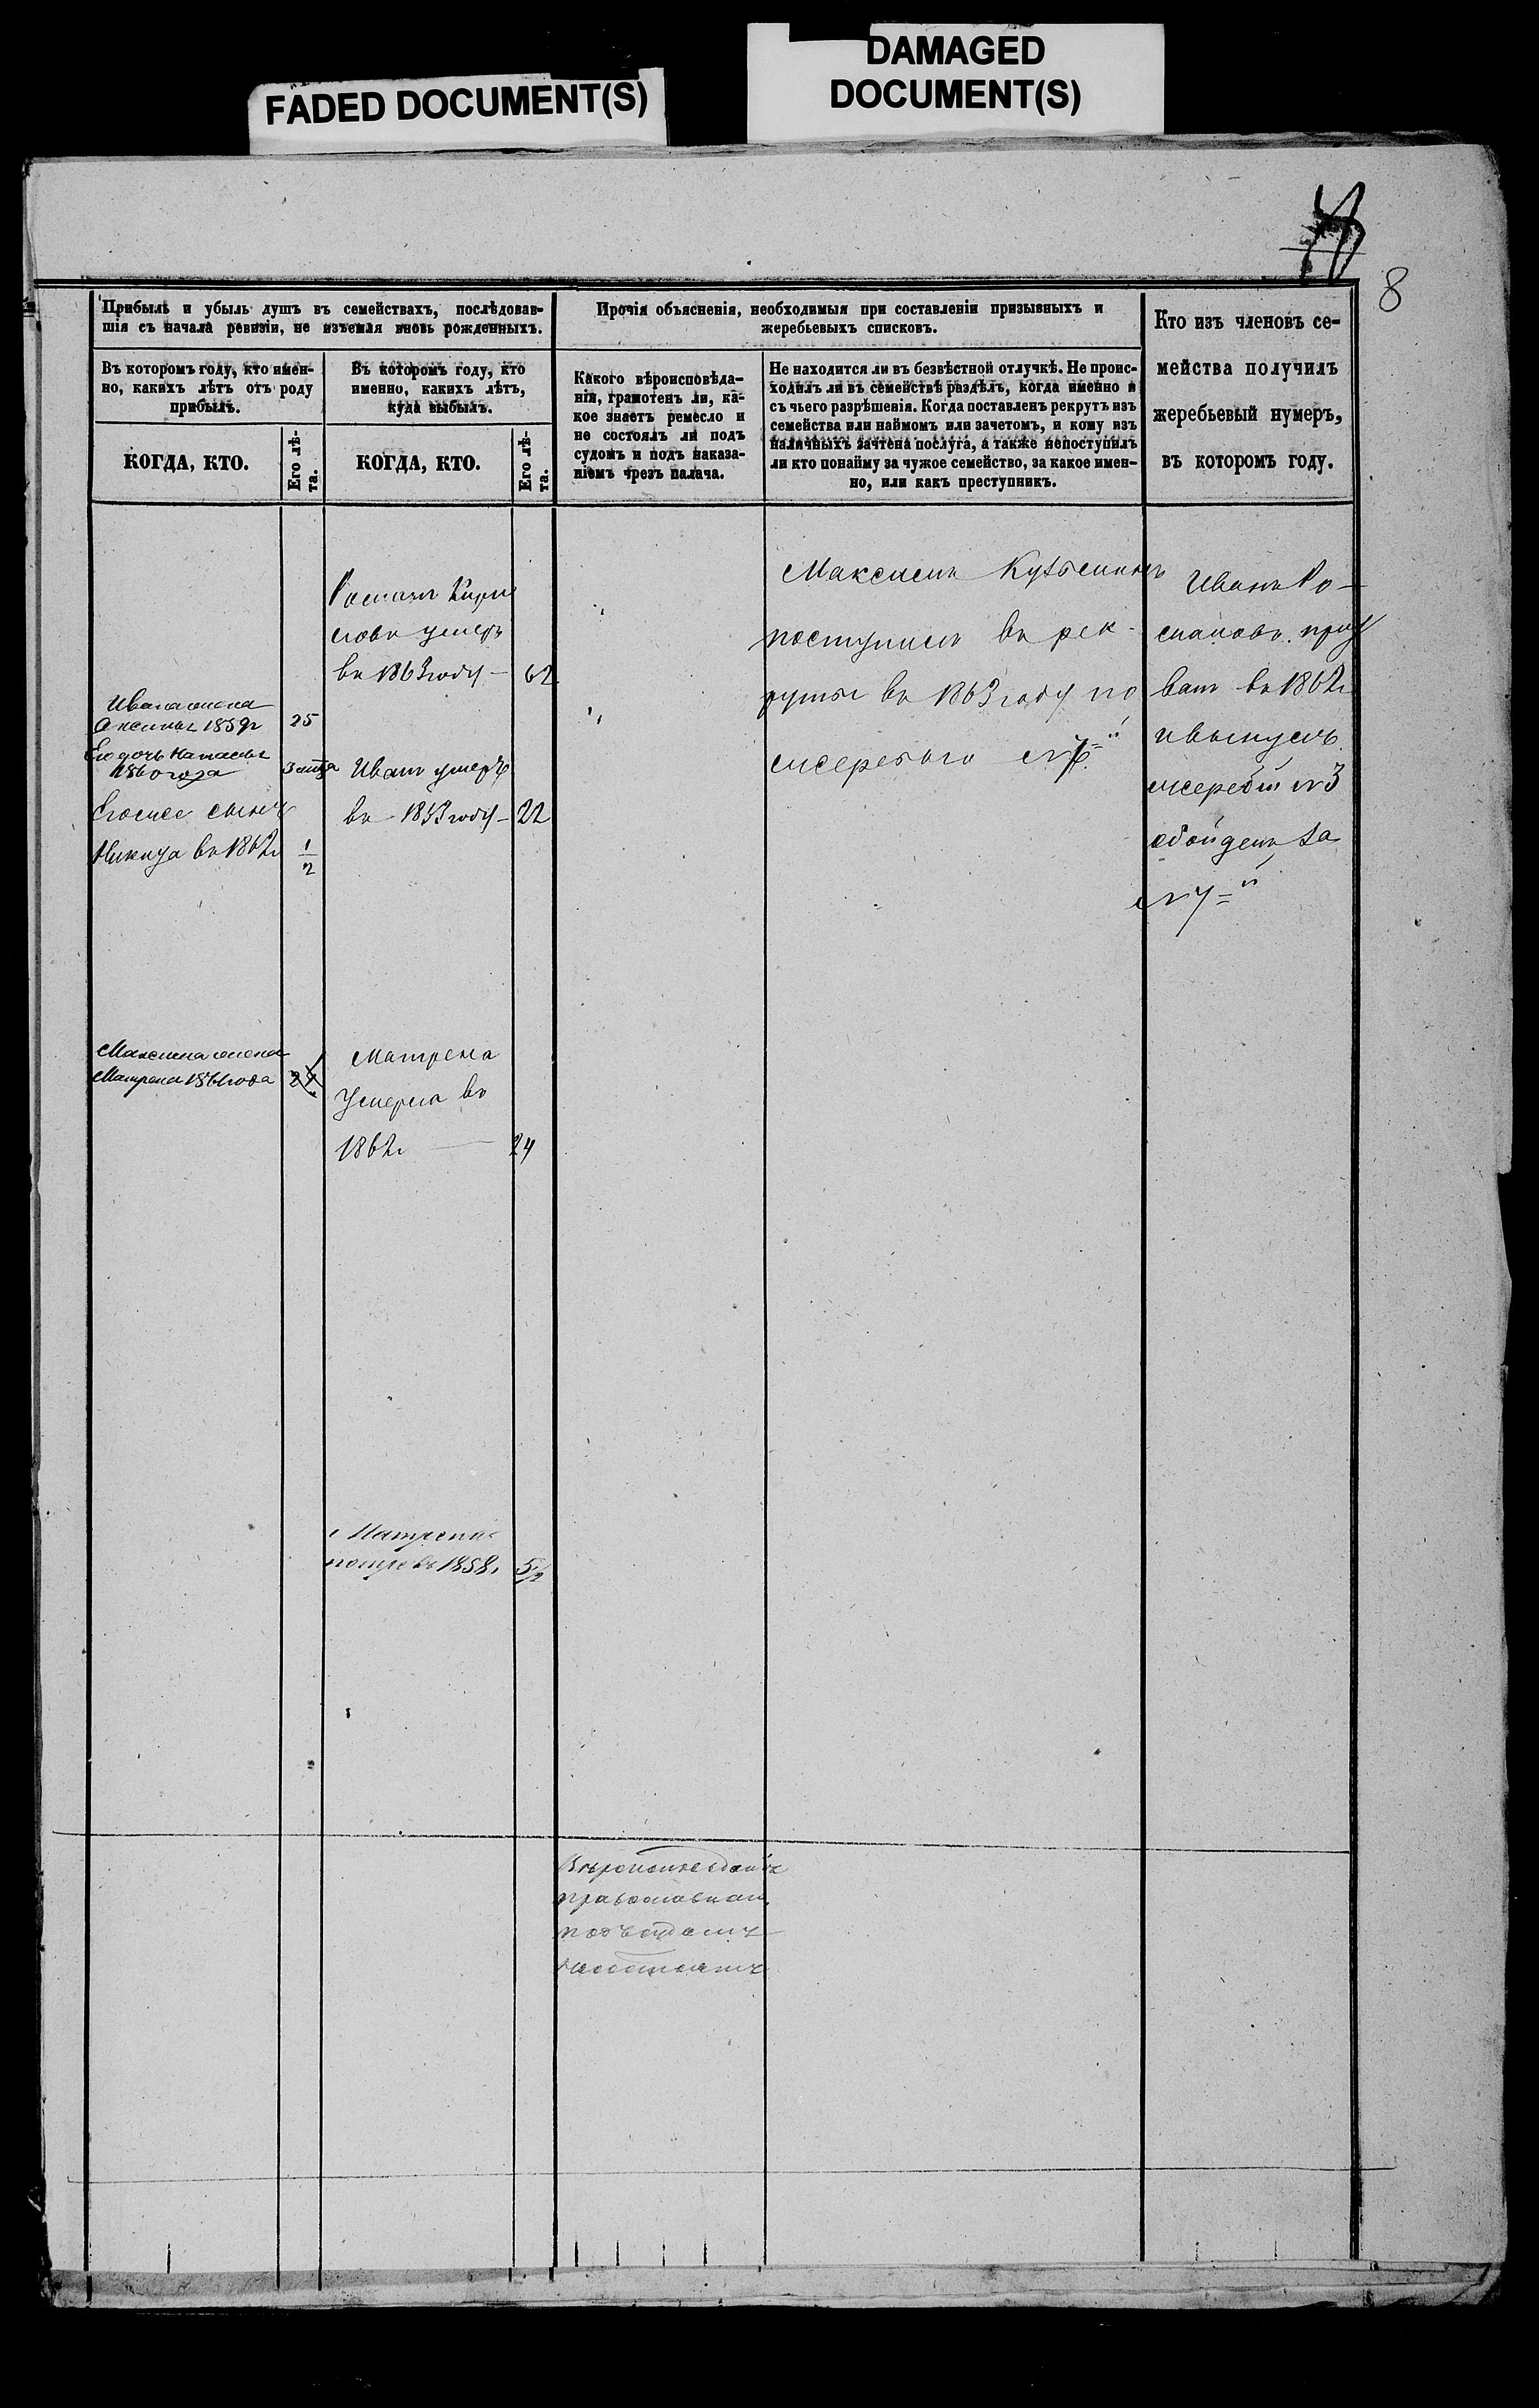 FADED DOCUMENT(S)
DAMAGED
DOCUMENT(S)
8
Прибыль и убыль душъ въ семействахъ, послѣдовав-
шія съ начала ревизіи, не изъемля вновь рожденныхъ.
Въ которомъ году, кто имен-
но, какихъ лѣтъ отъ роду
прибылъ.
КОГДА, КТО.
Его лѣ-
та.
Въ которомъ году, кто
именно, какихъ лѣтъ,
куда выбылъ.
КОГДА, КТО.
Его лѣ-
та.
Прочія объясненія, необходимыя при составленіи призывныхъ и
жеребьевыхъ списковъ.
Какого вѣроисповѣда-
нія, грамотенъ ли, ка-
кое знаетъ ремесло и
не состоялъ ли подъ
судомъ и подъ наказа-
ніемъ чрезъ палача.
Не находится ли въ безвѣстной отлучкѣ. Не проис-
ходилъ ли въ семействѣ раздѣлъ, когда именно и
съ чьего разрѣшенія. Когда поставленъ рекрутъ изъ
семейства или наймомъ или зачетомъ, и кому изъ
наличныхъ зачтена послуга, а также непоступилъ
ли кто понайму за чужое семейство, за какое имен-
но, или какъ преступникъ.
Кто изъ членовъ се-
мейства получилъ
жеребьевый нумеръ,
въ которомъ году.
Ивана жена
Аксинья 1859г 25
Его дочь
1860 года
Его же сынъ
Никита въ 1862г 1/2
Максима жена
Матрена 1861 года 24
Романъ Кири
ловъ умеръ
въ 1863 году — 62
Иванъ умеръ
въ 1853 году — 22
Матрена
Умерла въ
1862г — 24
Матрена
въ 1858г 5/2
Вѣроисповѣданія
православнаго
подъ судомъ
несостоялъ
Максимъ Кузьминъ
поступилъ въ рек-
руты въ 1863 году по
жеребью №
Иванъ Ро-
мановъ призы
ванъ въ 1862г
и вынулъ
жеребій №3
обойденъ за
№